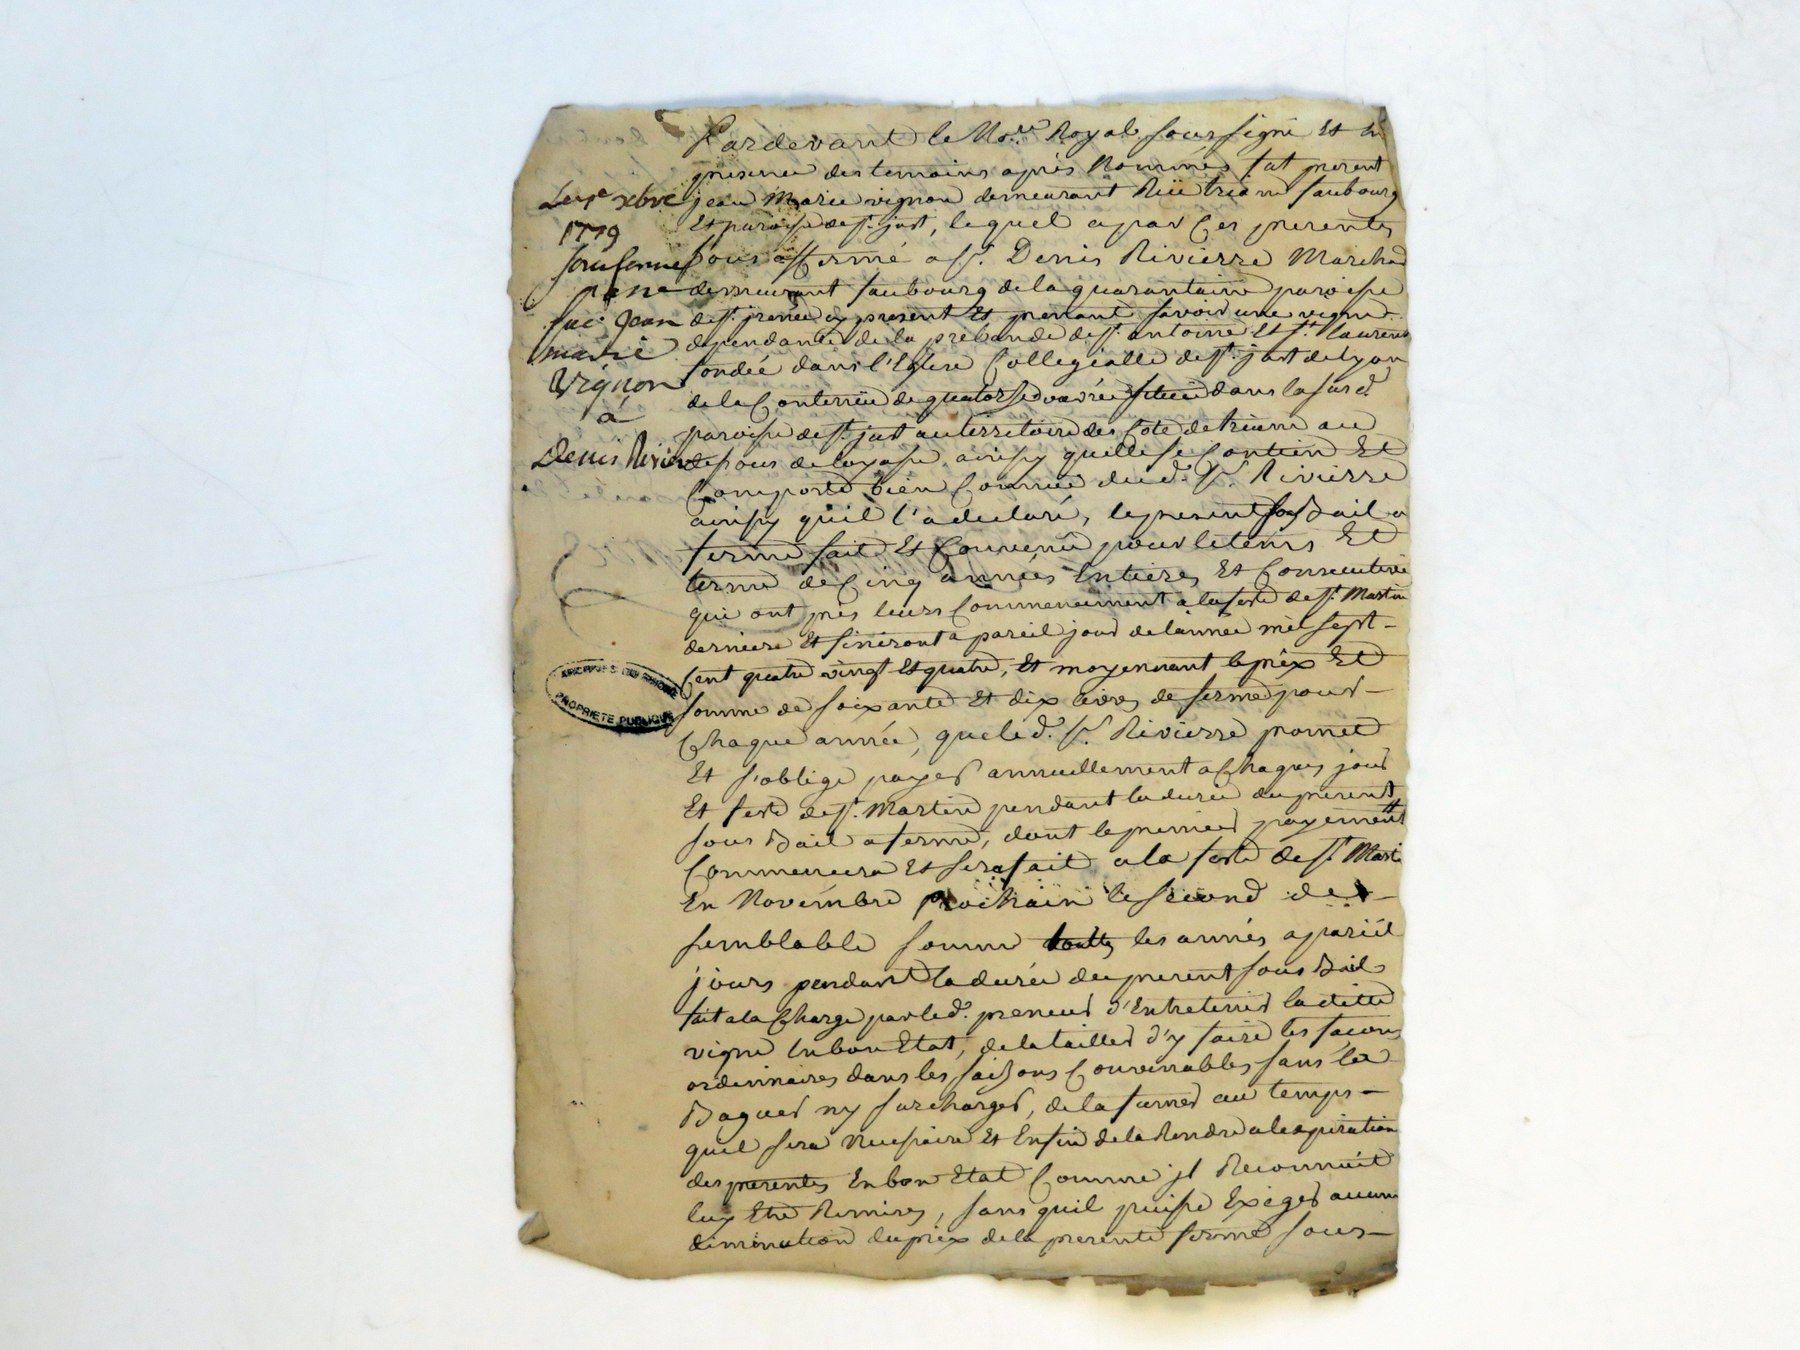 Pardevant le No.re Royal sousigné Et en
presence des temoins après Nommés fut present
jean Marie vignon demeurant Rüe trion faubourg
Et paroisse de st. just, lequel a par Ces presentes
sous affermé a sr. Denis Rivierre Marchand
demeurant faubourg de la quarantaine paroisse
de st. jrenée cy present Et prenant savoir une vigne
dependante de la prébande de st. antoine Et st. laurent
fondée dans l'Eglise Collegialle de st. just de Lyon
de la Contenüe de quatorze
paroisse de st. just au territoire des Cote de trion au
de Loyasse, ainsy quelle se Contien Et
Comporte bien Connüe dud. sr. Rivierre
ainsy quil l'a declaré, le present sous Bail a
ferme fait Et Convenu pour le tems Et
terme de Cinq années Entieres Et Consecutives
qui ont pris leurs Commencement a la feste de st. Martin
derniere Et finiront a pareil jour de l'année mil sept-
Cent quatre vingt Et quatre, Et moyennant le prix Et
somme de soixante Et dix livres de ferme pour-
Chaque année, que led. sr. Rivierre promet
Et s'oblige payer annuellement a Chaques jour
Et feste de st. Martin pendant la durée du present
sous Bail a ferme, dont le premier payement
Commencera Et sera fait a la feste de st. Martin
En Novembre prochain le second de-
semblable somme toutte les annés a pareil
jours pendant la durée du present sous Bail
fait a la Charge par led. preneur d'Entretenir la ditte
vigne En bon Etat, de la tailler d'y faire les façons
ordinnaires dans les saizons Convennables sans la
ny surcharger, de la fumer au temps-
quil sera Necessaire Et Enfin de la Rendre a lexpiration
des presentes En bon Etat Comme jl Reconnoit
luy Etre Remises, sans quil puisse Exiger aucune
diminution du prix de la presente ferme sous-
Du 1e xbre
1779
sousferme
passé
par Jean
marie
Vignon
à
Denis Rivierre
ARCHIVES DU RHONE
PROPRIETE PUBLIQUE